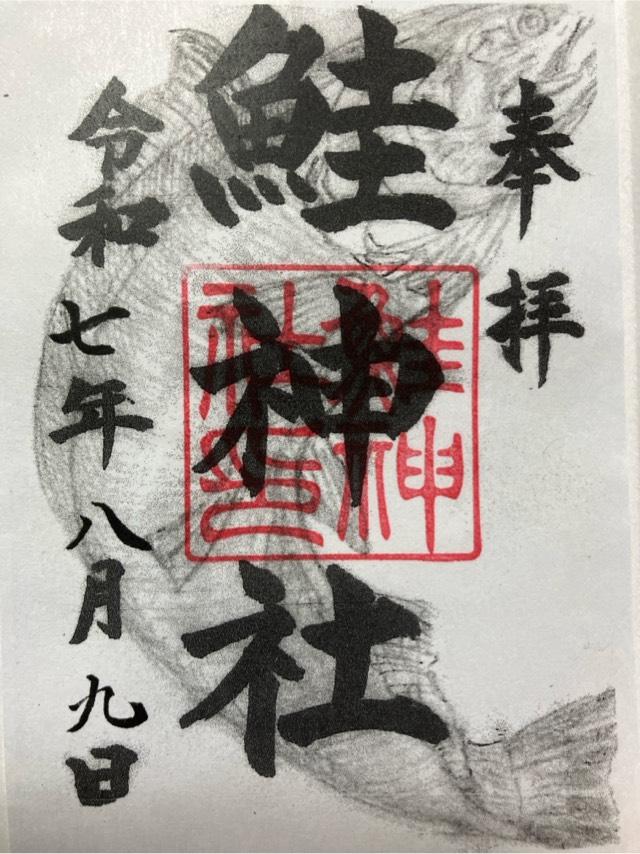 奉拝
鮭神社
鮭神社印
令和七年八月九日